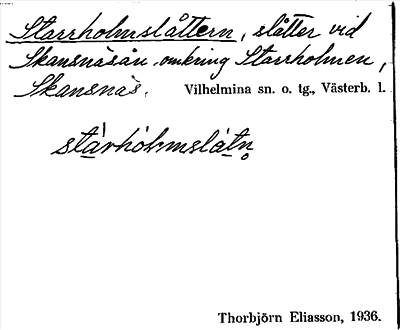 Starrholmslåttern, slåtter vid
Skansnäsån omkring Starrholmen,
Skansnäs. Vilhelmina sn. o. tg., Västerb. l.
stárhòḷmslåtn̥
Thorbjörn Eliasson, 1936.